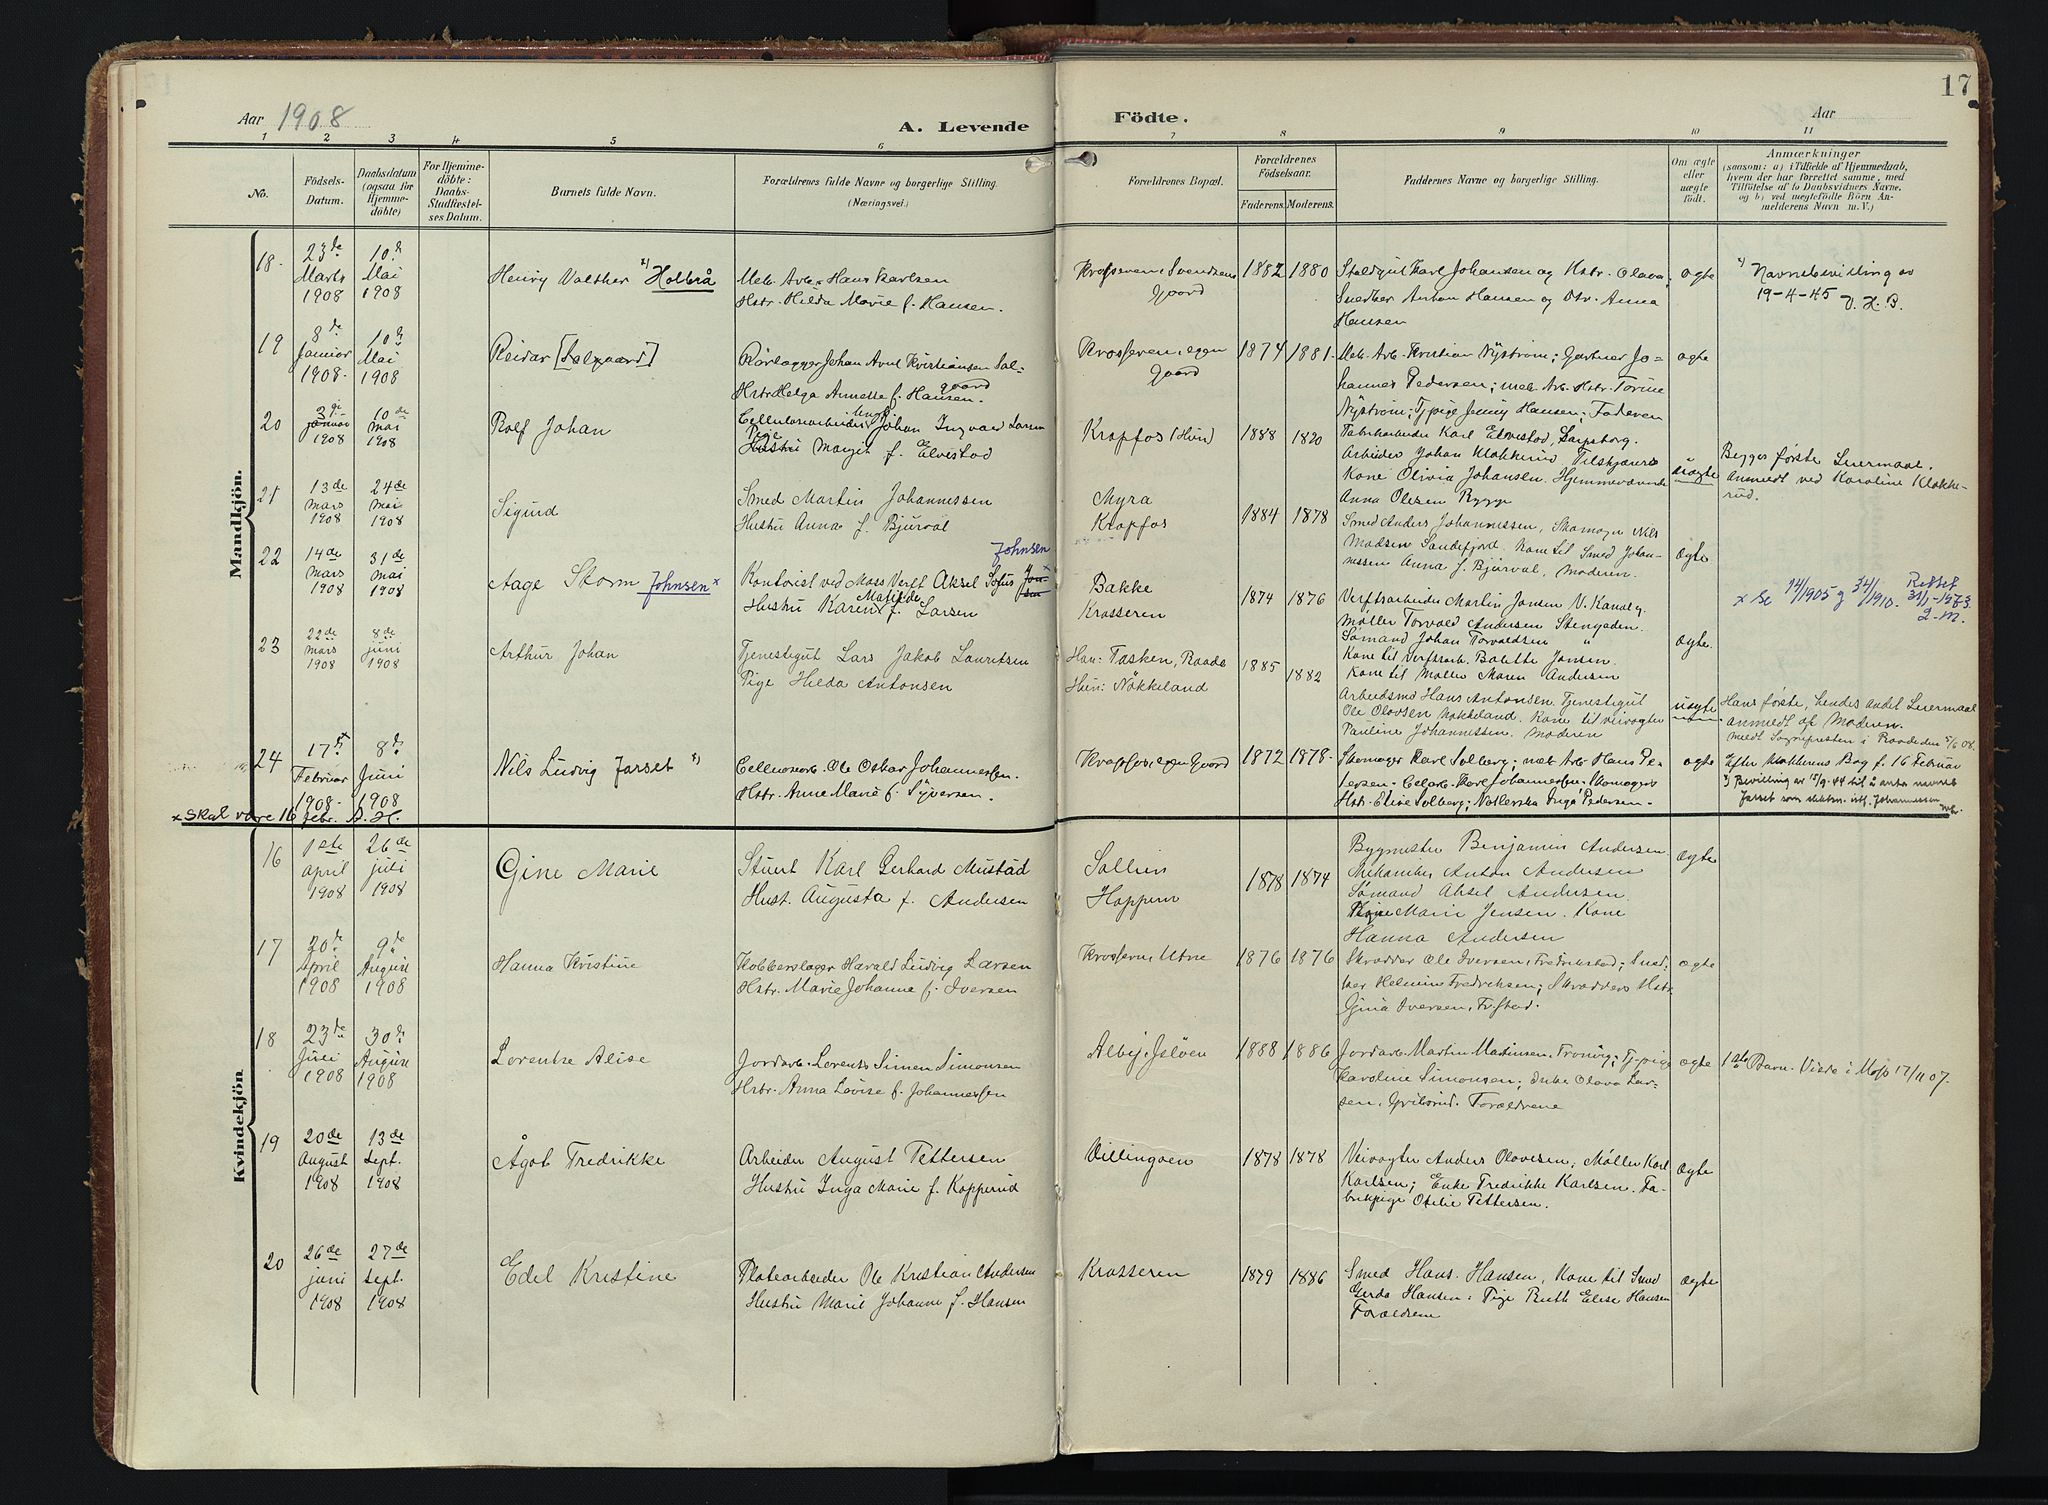 17
Aar 1908
A. Levende
Födte.
Aar
1 2 3 4 5 6 7 8 9 10 11
No.
Födsels-
Datum.
Daabsdatum
(ogsaa for
Hjemme-
döbte)
For Hjemme-
döbte:
Daabs-
Stadfæstel-
ses Datum.
Barnets fulde Navn.
Forældrenes fulde Navne og borgerlige Stilling.
(Næringsvei.)
Forældrenes Bopæl.
Forældrenes
Födselsaar.
Faderens. Moderens.
Faddernes Navne og borgerlige Stilling.
Om ægte
eller
uægte
födt.
Anmærkninger
(saasom: a) i Tilfælde af Hjemmedaab,
hvem der har forrettet samme, med
Tilföielse af to Daabsvidners Navne,
og b) ved uægtefödte Börn An-
melderens Navn m. V.)
Mandkjön.
18. 23de Marts 1908
10de Mai 1908
Henry Valther x) Holbrå
Mek. Arb. Hans Karlsen
Hstr. Hilda Marie f. Hansen.
Krosseren, Svendsens
Gaard
1882 1880
Staldgut Karl Johansen og Hstr. Olava;
Snedker Anton Hansen og Hstr. Anna
Hansen
ægte
x) Navnebevilling av
19-4-45
19 8de Januar 1908.
10de Mai 1908
Reidar [Salgaard]
Rørlægger Johan Arnt Kristiansen Sal-
gaard
Hstr. Helga Annette f. Hansen.
Krosseren, egen
Gaard
1874 1881.
Mek. Arb. Kristian Nyström; Gartner Jo-
hannes Pedersen; mek. Arb. Hstr. Torine
Nyström; Tjpige Jenny Hansen; Faderen
ægte
20 3die januar 1908
10de mai 1908
Rolf Johan
Cellulosearbeider Ungk. Johan Ingvald Larsen
Pige
Hustru Margit f. Elvestad
Krapfos (Hun)
1888 1820
Fabrikarbeider Karl Elvestad, Sarpsborg.
Arbeider Johan Klokkerud Tilskjærers
Kone Olivia Johansen. Hjemmeværende
Anna Olesen Bygge
uægte
Begges første Leiermaal.
Anmeldt ved Karoline Klokke-
rud.
21 13de mars 1908
24de mai 1908
Sigurd
Smed Martin Johannessen
Hustru Anna f. Bjurvål
Myra
Krapfos
1884 1878
Smed Anders Johannessen, Skomager Nils
Madsen Sandefjord. Kone til Smed Johan-
nessen Anna f. Bjurvål, Moderen.
ægte
22 14de mars 1908
31de mai 1908
Aage Storm Johnsen x
Johnsen
Kontorist ved Moss Verft Aksel Sofus Jon-
sen
Hustru Karen Matilde f. Larsen
Bakke
Krosseren
1874 1876
Verftsarbeider Martin Jansen V. Kanalg.
Møller Torvald Andersen Stengaden.
Sømand Johan Torvaldsen "
Kone til Verftsarb. Balette Jansen.
Kone til Møller Maren Andersen
ægte.
x Se 14/1905 og 34/1910. Rettet
31/1-1973.
23 22de mars 1908
8de juni 1908
Arthur Johan
Tjenestegut Lars Jakob Lauritsen
Pige Hilda Antonsen
Han: Tasken, Raade
Hun: Nökkeland
1885 1882
Arbeidsmd Hans Antonsen. Tjenestegut
Ole Olavsen Nökkeland. Kone til veivogter
Pauline Johannessen. Moderen
uægte
Hans første, hendes andet Leiermaal
anmeldt af Moderen.
meldt Sognepresten i Raade den 8/6 08.
24 17de x Februar 1908.
8de Juni 1908
x skal være 16 febr. A. H.
Nils Ludvig Jarset x)
Cellulosearb. Ole Oskar Johannessen.
Hstr. Anne Marie f. Syversen.
Krapfos, egen Gaard
1872 1878.
Skomager Karl Solberg; mek Arb. Hans Pe-
tersen. Celarb. Karl Johannessen. Skomagers
Hstr. Elise Solberg; Inga Pedersen.
ægte
Efter Klokkerens Bog f. 16 Februar
x) Bevilling av 15/9-44 til å anta navnet
Jarset som slektsn. istf. Johannessen
Kvindekjön
16 1ste april 1908
26de juli 1908
Gine Marie
Stuert Karl Gerhard Mustad
Hust. Augusta f. Andersen
Sollien
Hoppern
1878 1874
Bygmester Benjamin Andersen
Mekaniker Anton Andersen
Sømand Aksel Andersen
Pige Marie Jensen. Kone
Hanna Andersen
ægte
17 20de April 1908
9de August 1908
Hanna Kristine
Kobberslager Harald Ludvig Larsen
Hstr. Marie Johanne f. Iversen
Krosseren, Utne
1876 1876
Skrædder Ole Iversen, Fredrikstad; Sned-
ker Helmine Fredriksen; Skrædders Hstr.
Gina Iversen, Fr.stad.
ægte
18 23de Juli 1908
30de August 1908
Lorentze Alise
Jordarb. Lorents Simen Simonsen
Hstr. Anna Lovise f. Johannessen
Alby, Jeløen
1888 1886
Jordarb. Martin Martinsen, Tronvig; Tj. pige
Karoline Simonsen; Enke Olava Lar-
sen, Grilsrud. Forældrene
ægte
1ste Barn. Viede i Moss 17/11 07.
19 20de August 1908
13de Sept. 1908
Ågot Fredrikke
Arbeider August Pettersen
Hustru Inga Marie f. Kopperud
Dillingøen
1878 1878
Veivogter Anders Olavesen; Møller Karl
Karlsen; Enke Fredrikke Karlsen. Fa-
brikpige Otilie Pettersen.
ægte
20 26de juni 1908
27de sept. 1908
Edel Kristine
Platearbeider Ole Kristian Andersen
Hustru Marie Johanne f. Hansen
Krosseren
1879 1886
Smed Hans Hansen, Kone til Smed
Gerda Hansen: Pige Ruth Elise Hansen
Forældrene
ægte